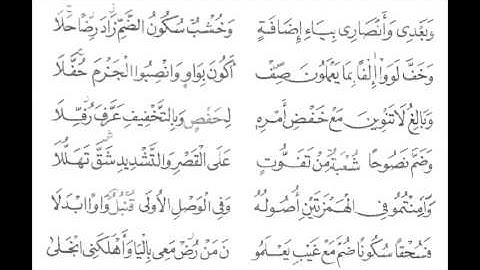 وَبَعْدِى وَأَنْصَارِى بِيَاءِ إِضَافَةٍ وَخُشْبٌ سُكُونُ الضَّمِّ زَادَ رِضًا حَلَا
وَخَفَّ لَوَوْا إِلْفًا بِمَا يَعْمَلُونَ صِفْ أَكُونَ بِوَاوٍ وَانْصِبُوا الْجَزْمَ حُفَّلَا
وَبَالِغُ لَا تَنْوِينَ مَعْ خَفْضِ أَمْرِهِ لِحَفْصٍ وَبِالتَّخْفِيفِ عَرَّفَ رُفِّلَا
وَضَمَّ نَصُوحًا شُعْبَةٌ مِنْ تَفَوُّتٍ عَلَى الْقَصْرِ وَالتَّشْدِيدِ شَقَّ تَهَلُّلَا
وَآمِنْتُمُو فِى الْهَمْزَتَيْنِ أُصُولُهُ وَفِى الْوَصْلِ الْأُولَى قُنْبُلٌ وَاوًا ابْدَلَا
فَسُحْقًا سُكُونًا ضُمَّ مَعْ غَيْبِ يَعْلَمُو نَ مَنْ رُضْ مَعِى بِالْيَا وَأَهْلَكَنِى انْجَلَى